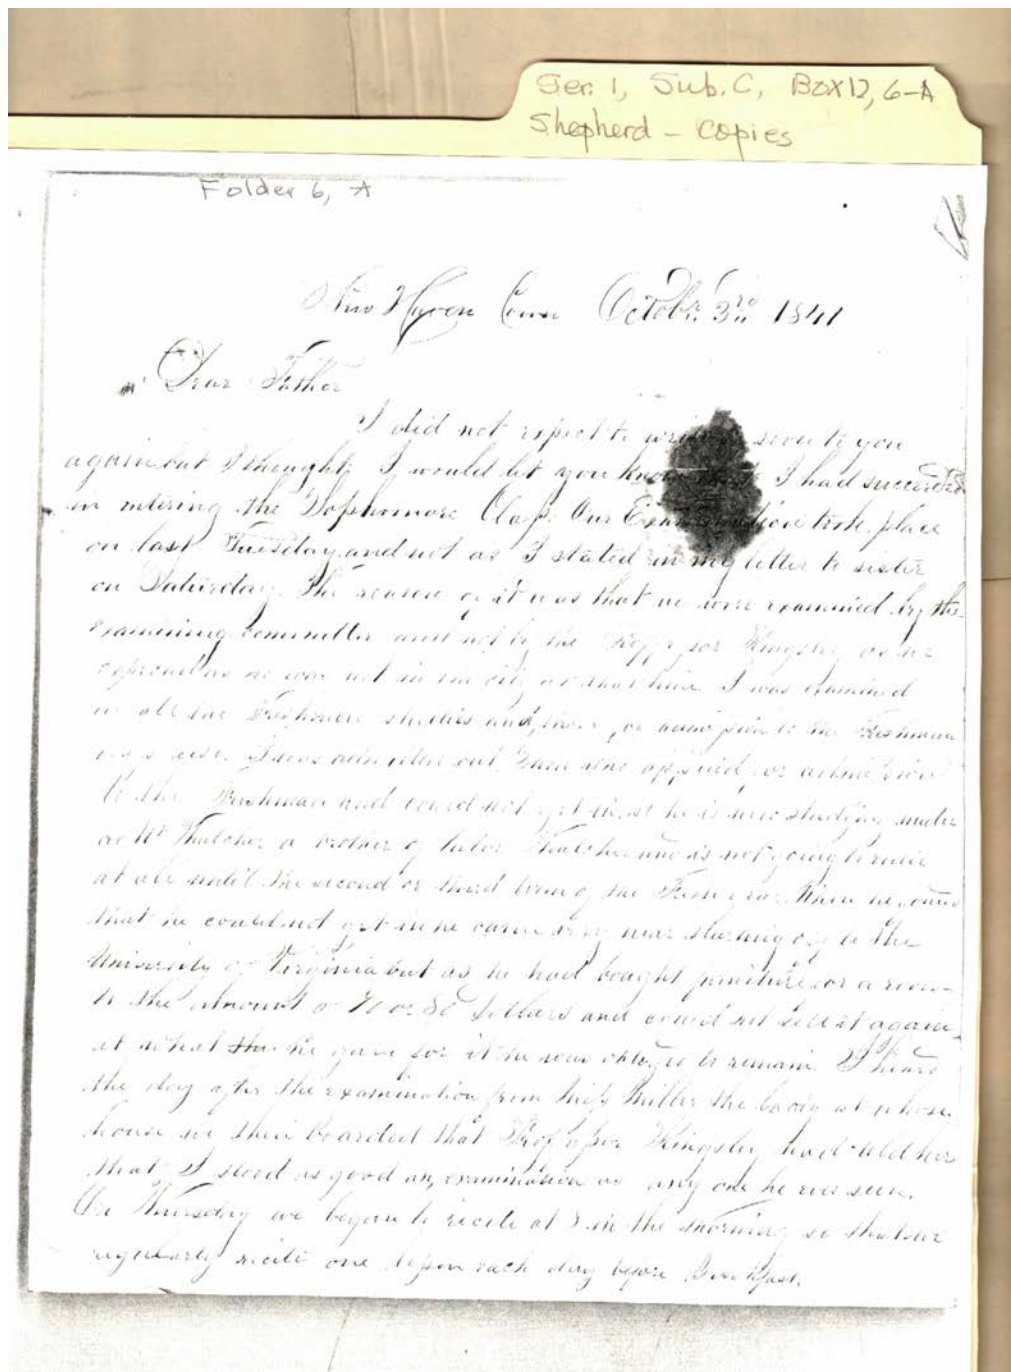 Ser. 1, Sub. C, Box 12, 6-A
Shepherd - Copies
Folder 6, A
New Haven Conn October 3rd 1841
Dear Father
I did not expect to so soon to you
again but I thought I would let you know I had succeeded
in entering the Sophomore Class. Our Examination took place
on last Tuesday and not as I stated in my letter to sister
on Saturday. The reason of it was that we were examined by the
examining committee and not by the Professor Kingsley as we
expected as he was not in the city at that time. I was examined
in all the Freshmen studies and those for admission to the Freshman
I was admitted but applied for admission
to the Freshman and could not get in, so he is now studying under
a Mr Thatcher a brother of tutor Thatcher and is not going to enter
at all until the second or third term of the Fresh year. When he found
that he could not get in he came very near starting off to the
University of Virginia but as he had bought furniture for a room
to the amount of 70 or 80 dollars and could not sell it again
at what he gave for it he was obliged to remain. I heard
the day after the examination from Miss Miller the lady at whose
house we then boarded that Professor Kingsley had told her
that I stood as good an examination as any one he ever seen.
On Thursday we began to recite at in the morning so that we
regularly recite one lesson each day before Breakfast.